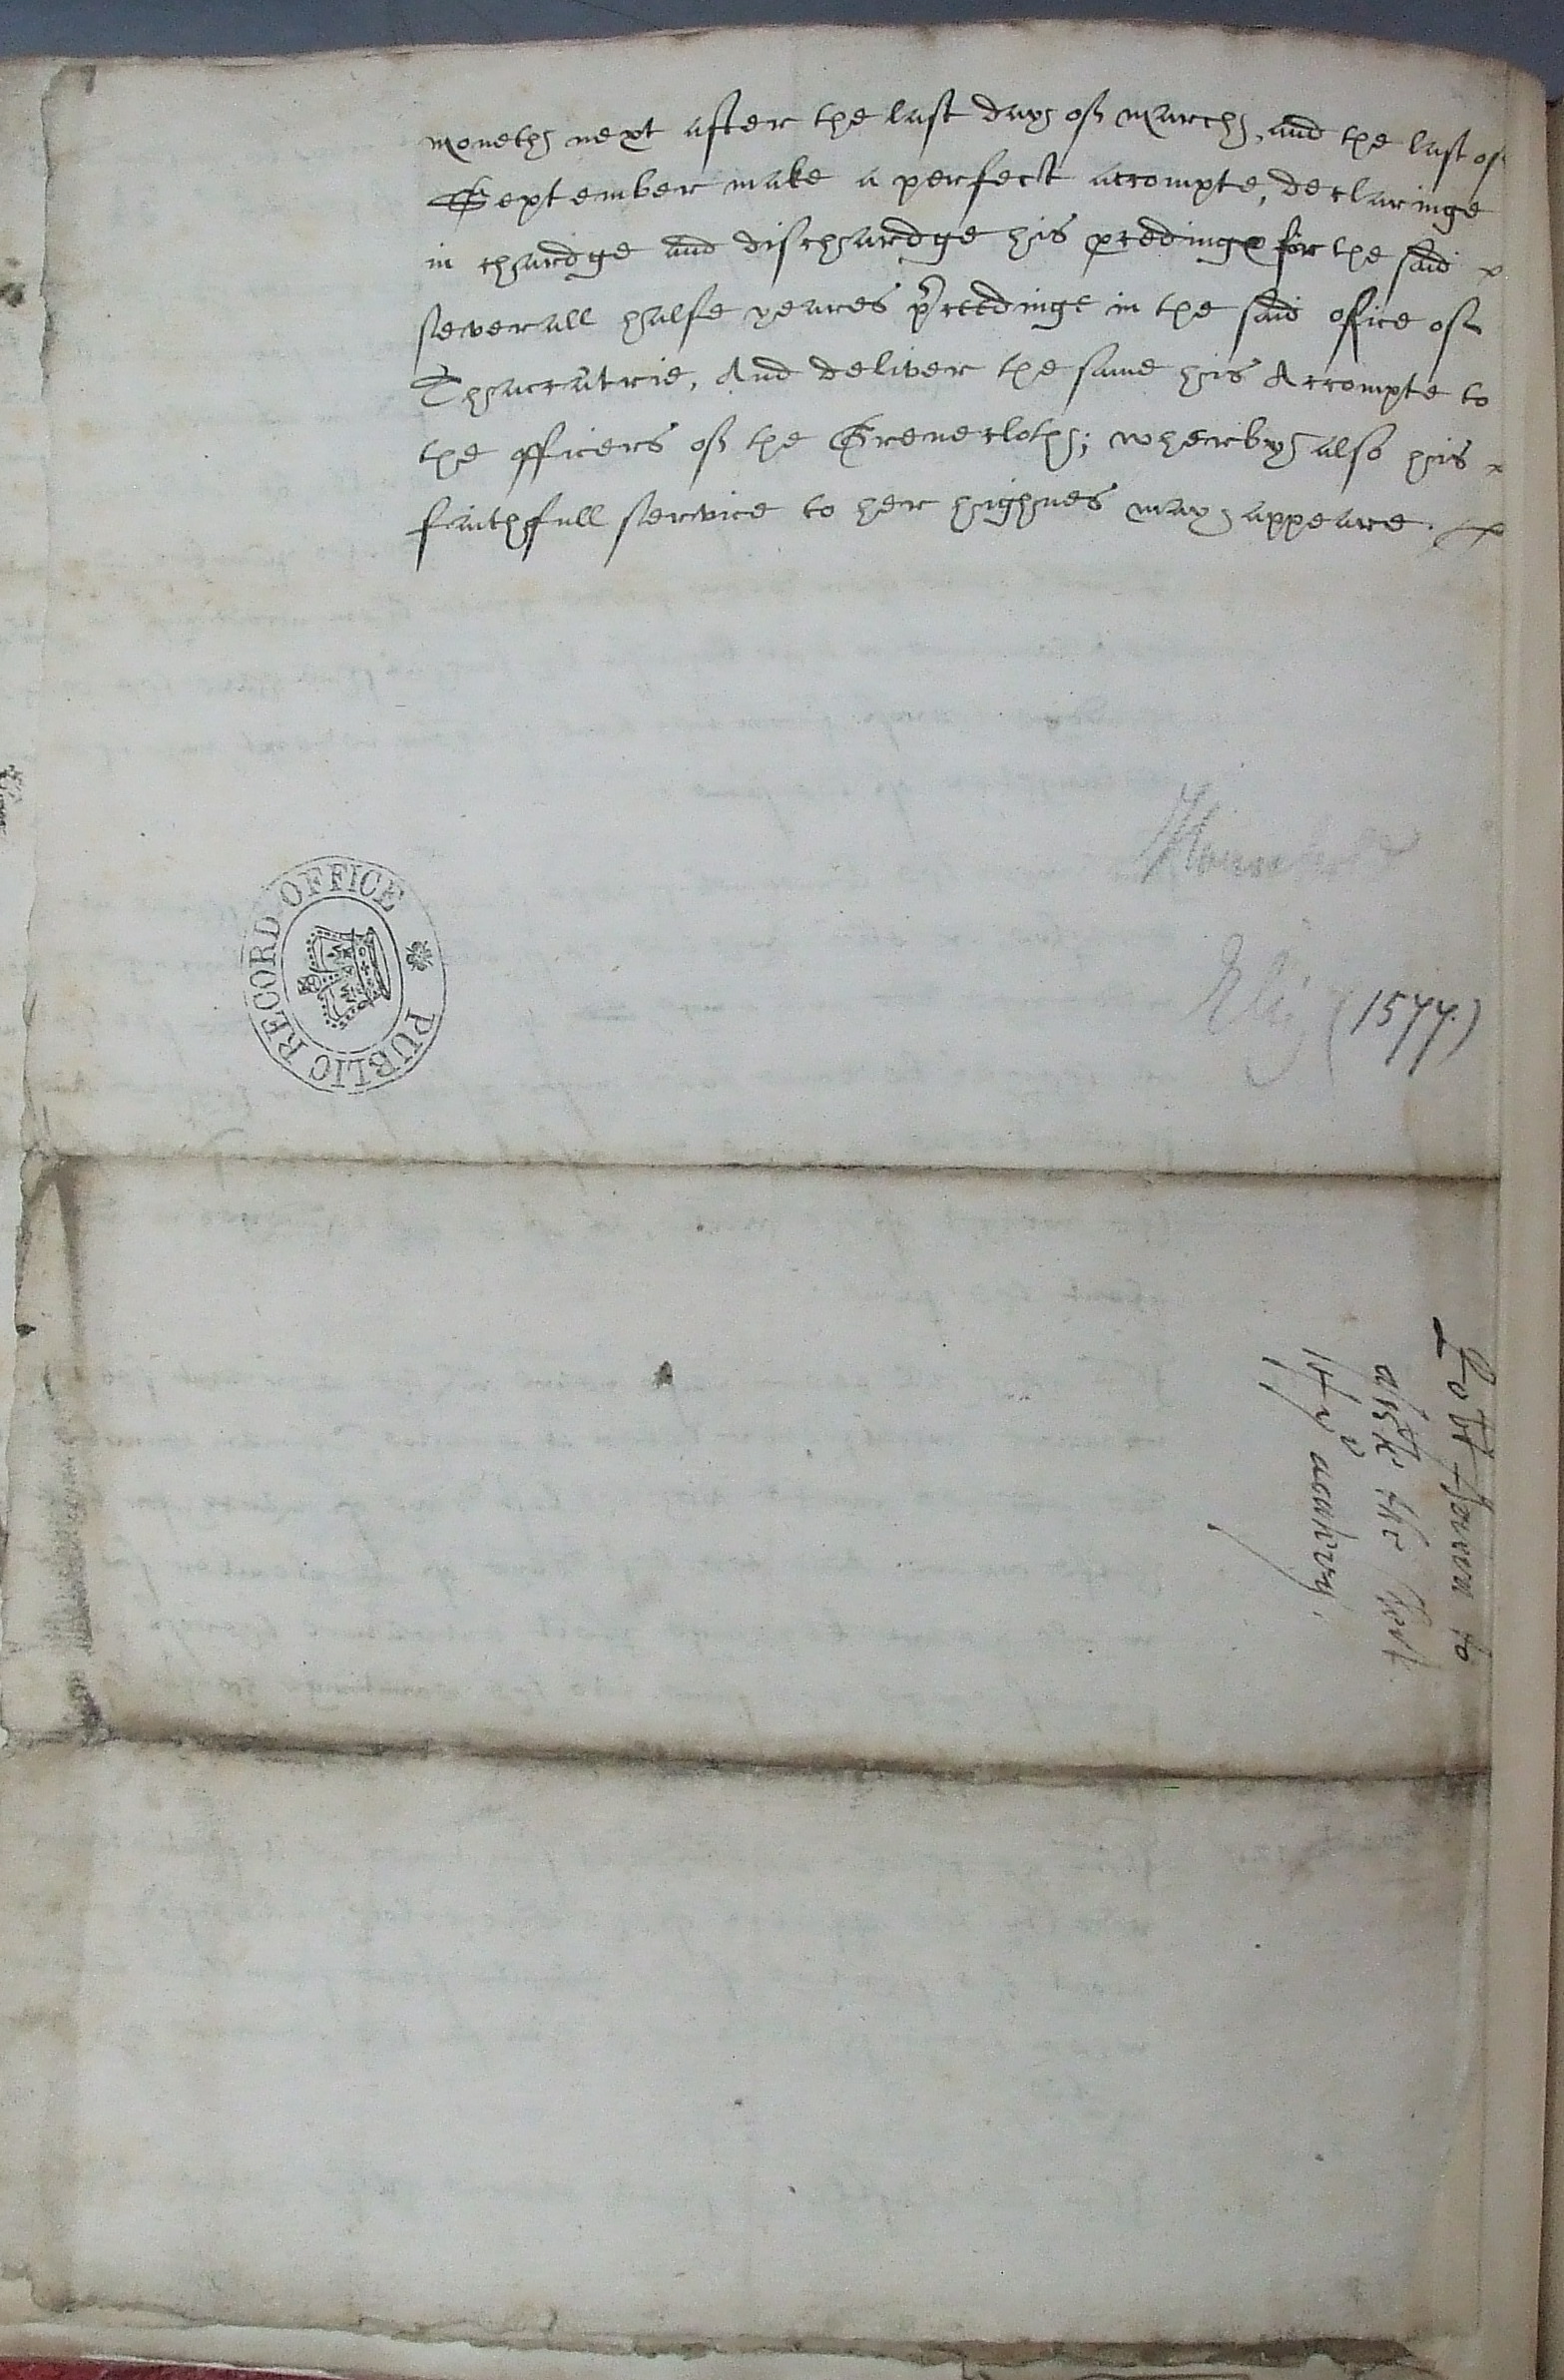 moneths next after the last daye of Marche, and the last of
September make a perfect accompte, declaringe
in chardge and dischardge his ꝓcedinge for the said
severall halfe yeares p̃cedinge in the said office of
Thaccatrie, And deliver the same his Accompte to
the officers of the Grenecloth; wherby also his
faithfull service to her highnes may appeare.
Household
Eliz (1577.)
PUBLIC RECORD OFFICE
to
the